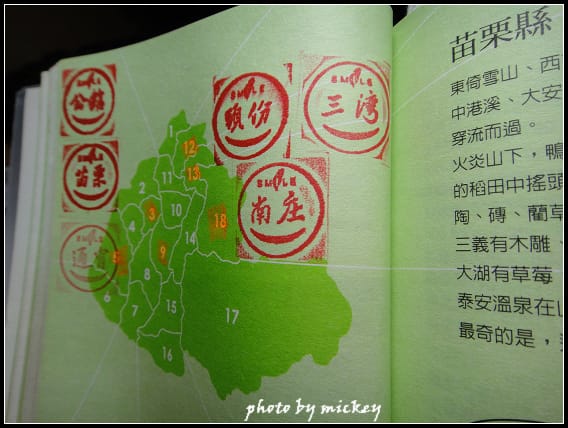 SMILE
公館
SMILE
頭份
SMILE
三湾
SMILE
苗栗
SMILE
南庄
SMILE
通霄
1
12
13
11
2
3
10
18
4
14
9
8
6
7
15
17
16
苗栗縣
東倚雪山、西
中港溪、大安
穿流而過。
火炎山下，鴨
的稻田中搖頭
陶、磚、藺草
三義有木雕、
大湖有草莓
泰安溫泉在
最奇的是，
photo by mickey